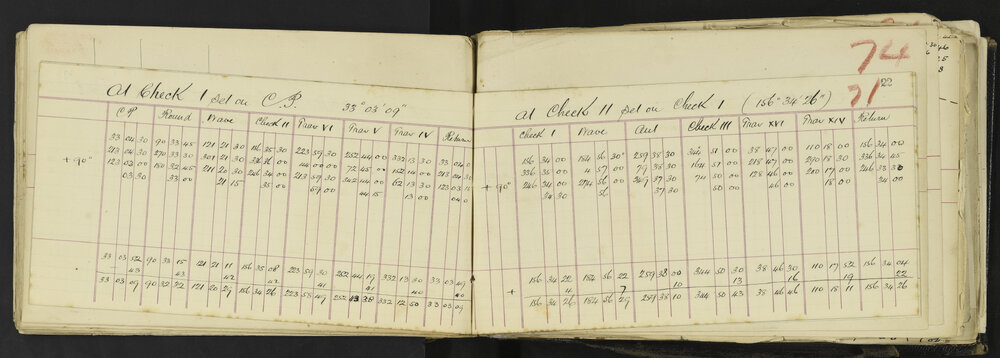 74
71
22
At Check I set on C.P. 33° 03' 09"
C.P. Round Wave Check II Trav VI Trav V Trav IV Return
33 04 30 90 33 45 121 21 30 156 35 30 223 59 30 252 44 00 332 13 30 33 04 0
213 04 30 270 33 30 301 21 30 336 35 00 44 00 00 72 45 00 152 14 00 213 04 30
+90° 123 03 00 180 32 45 211 20 30 246 34 00 213 59 30 342 44 00 62 13 30 123 03 15
03 30 33 00 21 15 35 00 59 00 44 15 13 00 04 0
33 03 52 90 33 15 121 21 11 156 35 08 223 59 30 252 44 19 332 13 30 33 03 49
43 43 42 42 41 41 40 40
33 03 09 90 32 32 121 20 29 156 34 26 223 58 49 252 43 38 332 12 50 33 03 09
At Check II set on Check I (156° 34' 26")
Check I Wave Aut Check III Trav XVI Trav XIV Return
156 34 00 184 56 30 259 38 30 344 51 00 38 47 00 110 18 00 156 34 00
336 35 00 4 57 00 79 38 30 164 51 00 218 47 00 290 18 30 336 34 45
+90° 246 34 00 274 56 00 349 37 30 74 50 00 128 46 00 210 17 00 246 33 30
34 30 56 37 30 50 00 46 00 18 00 34 00
156 34 22 184 56 22 259 38 00 344 50 30 38 46 30 110 17 52 156 34 04
+ 4 7 10 13 16 19 22
156 34 26 184 56 29 259 38 10 344 50 43 38 46 46 110 18 11 156 34 26